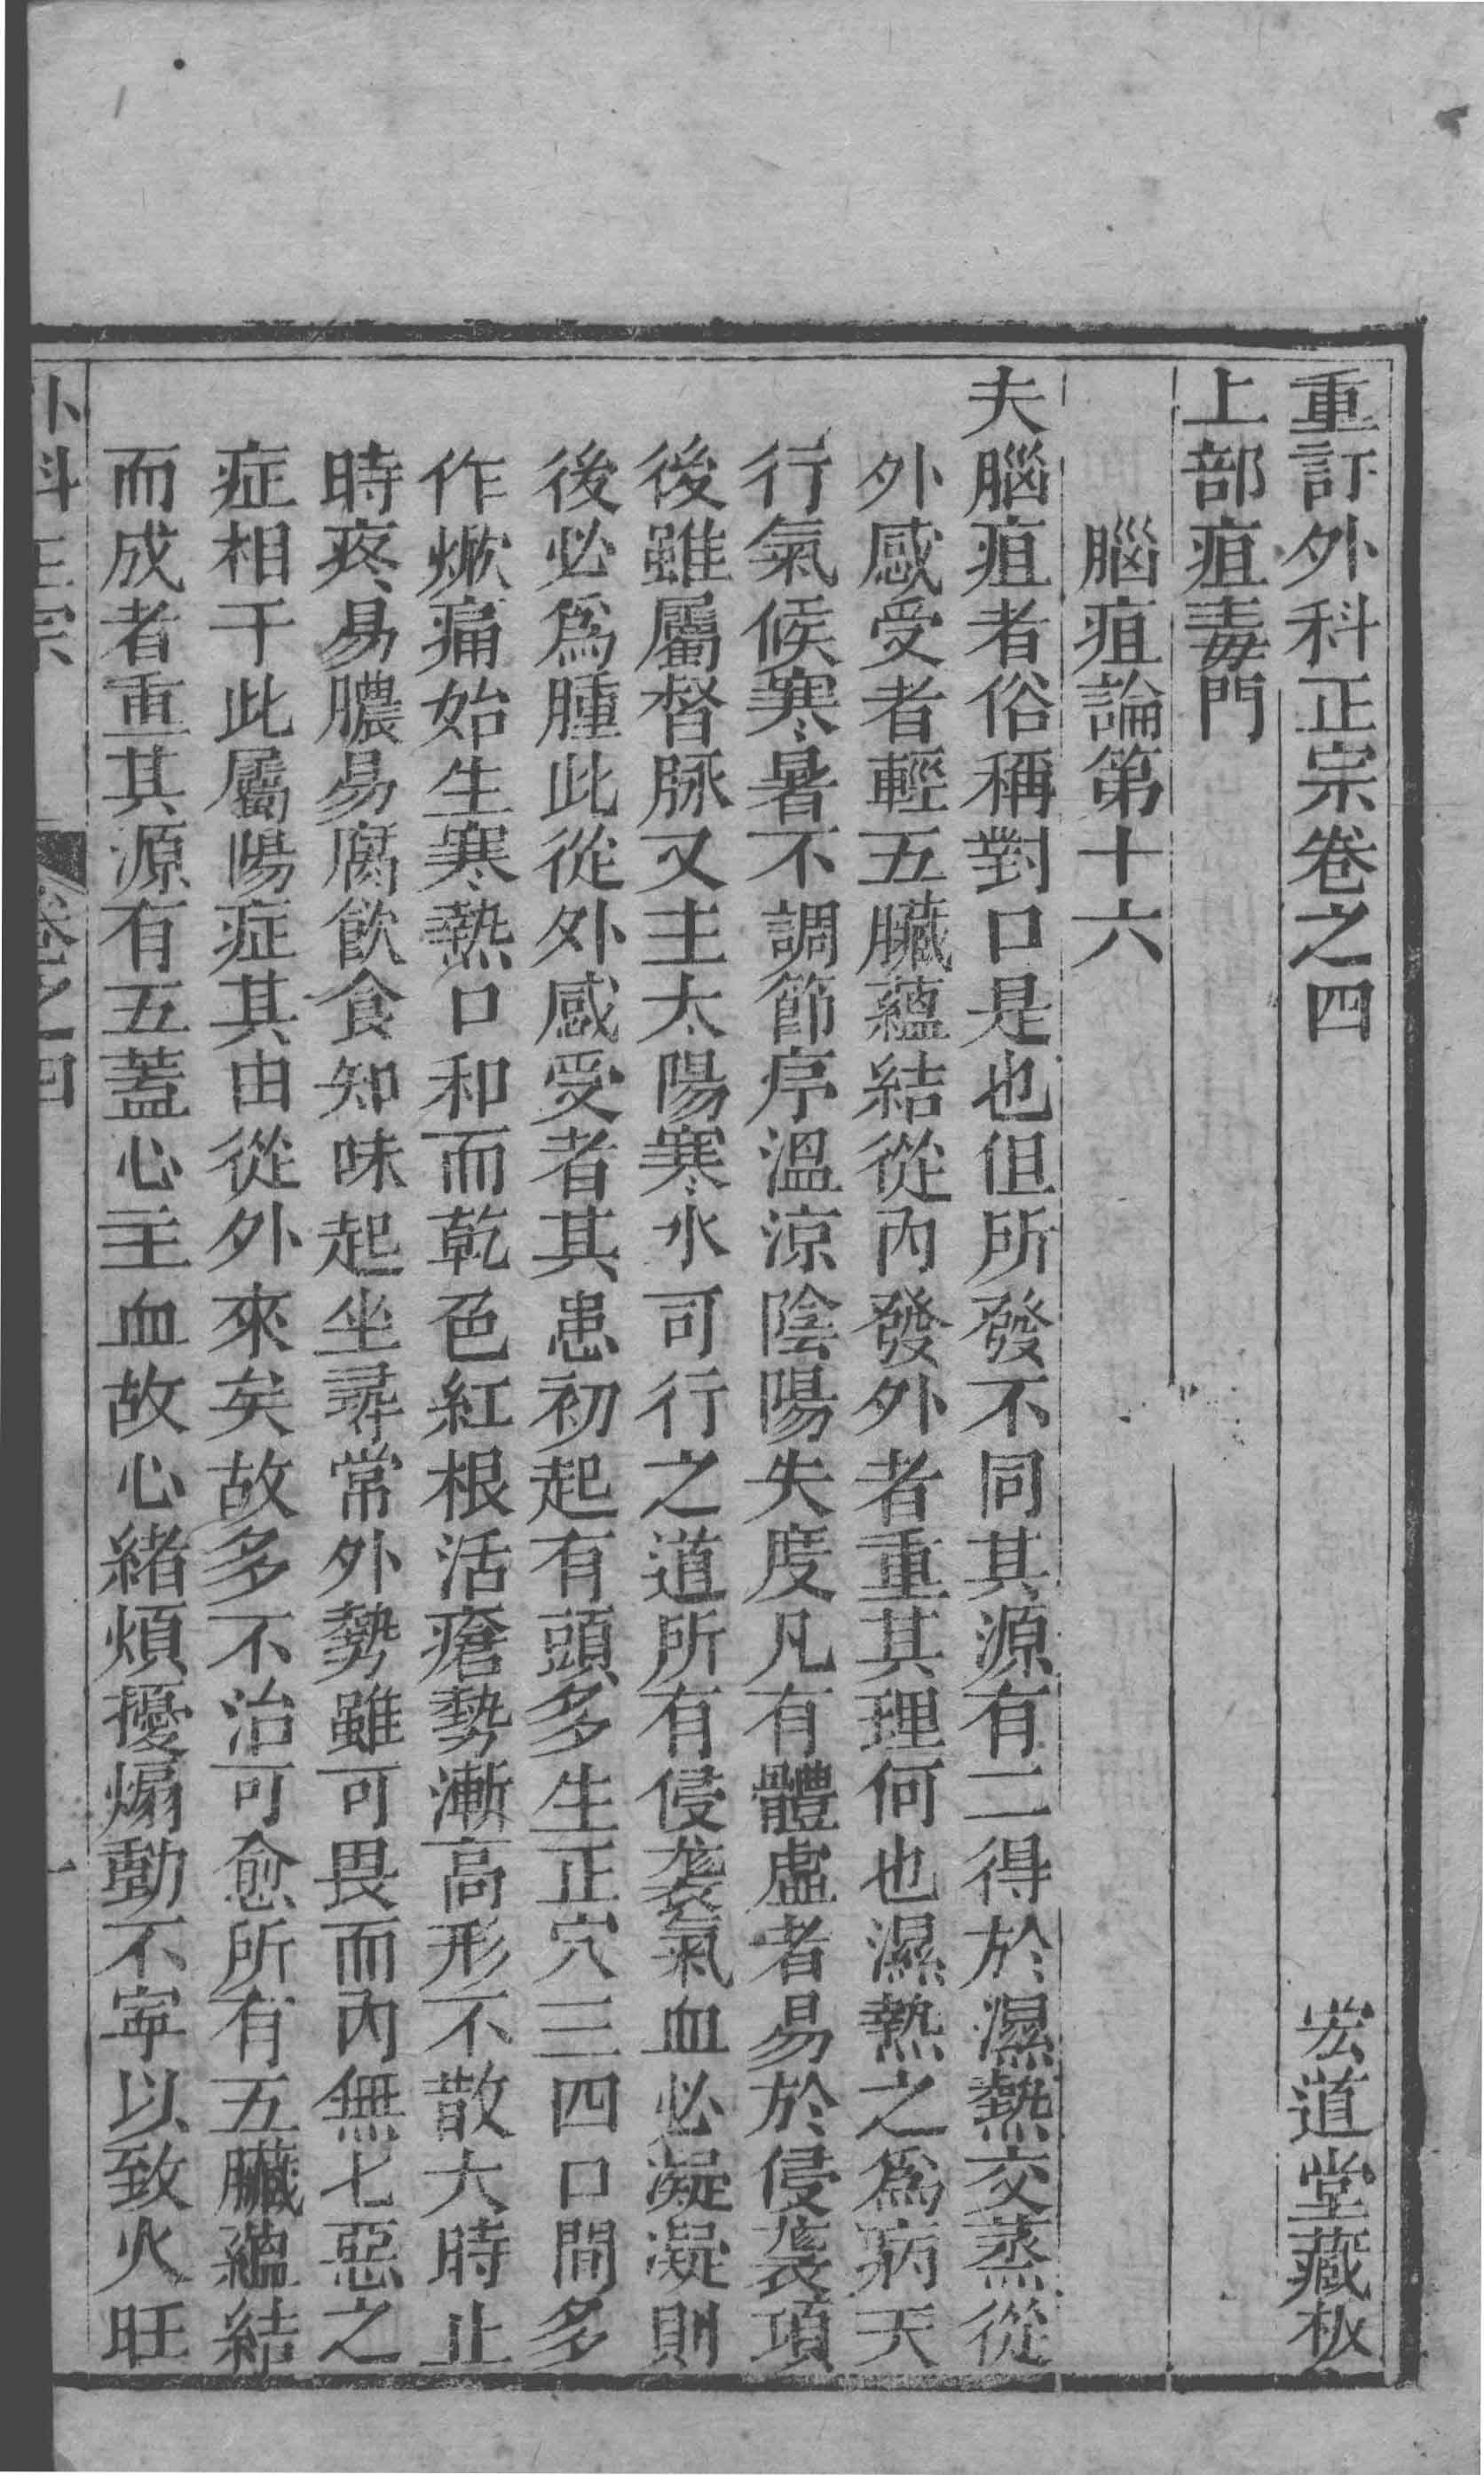 重訂外科正宗卷之四 宏道堂藏板
上部疽毒門
腦疽論第十六
夫腦疽者俗稱對口是也但所發不同其源有二得於濕熱交蒸從
外感受者輕五臟蘊結從內發外者重其理何也濕熱之爲病天
行氣候寒暑不調節序溫涼陰陽失度凡有體虛者易於侵袭項
後雖屬督脉又主太陽寒水司行之道所有侵袭氣血必凝凝則
後必爲腫此從外感受者其患初起有頭多生正穴三四口間多
作焮痛始生寒熱口和而乾色紅根活瘡勢漸高形不散大時止
時疼易膿易腐飲食知味起坐尋常外勢雖可畏而內無七惡之
症相干此屬陽症其由從外來矣故多不治可愈所有五臟蘊結
而成者重其源有五蓋心主血故心緒煩擾煽動不寧以致火旺
外科正宗 卷之四 一